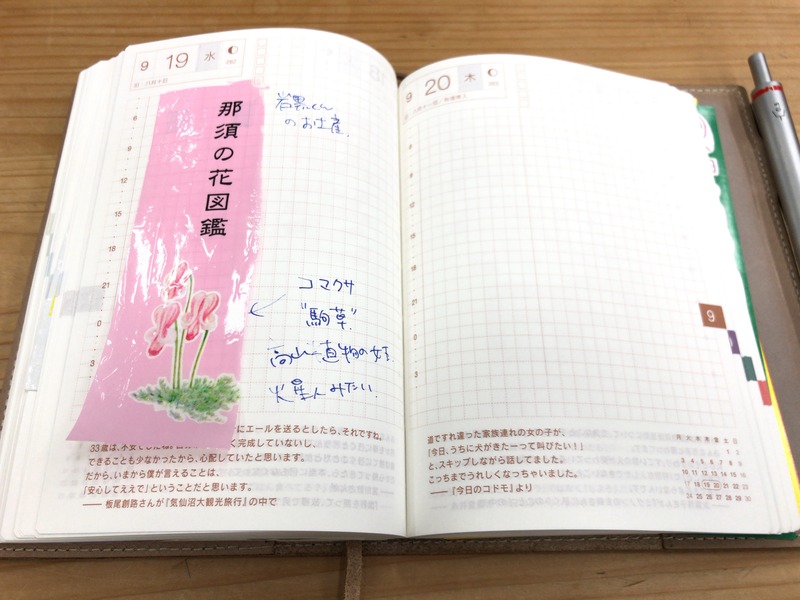 9 19 水
旧 八月十日
6
9
12
15
18
21
0
3
那須の花図鑑
岩黒くん
のお土産.
コマクサ
"駒草"
高山植物の女王
火星人みたい.
にエールを送るとしたら、それですね。
33歳は、
く完成していないし、
できることも少なかったから、心配していたと思います。
だから、いまから僕が言えることは、
「安心してええで」ということだと思います。
—— 板尾創路さんが『気仙沼大観光旅行』の中で
9 20 木
6
9
12
15
18
21
0
3
9
道ですれ違った家族連れの女の子が、
「今日、うちに犬がきたーって叫びたい!」
と、スキップしながら話してました。
こっちまでうれしくなっちゃいました。
—— 『今日のコドモ』より
月 火 水 木 金 土 日
1 2
3 4 5 6 7 8 9
10 11 12 13 14 15 16
17 18 19 20 21 22 23
24 25 26 27 28 29 30